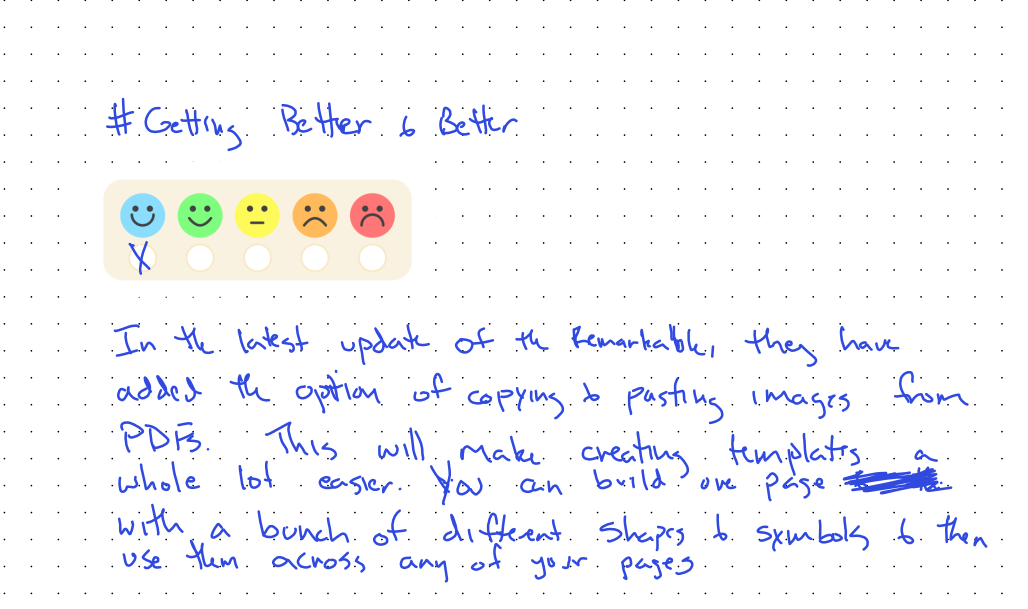 # Getting Better & Better
X
In the latest update of the Remarkable, they have
added the option of copying & pasting images from
PDFs. This will make creating templates a
whole lot easier. You can build one page
with a bunch of different shapes & symbols & then
use them across any of your pages